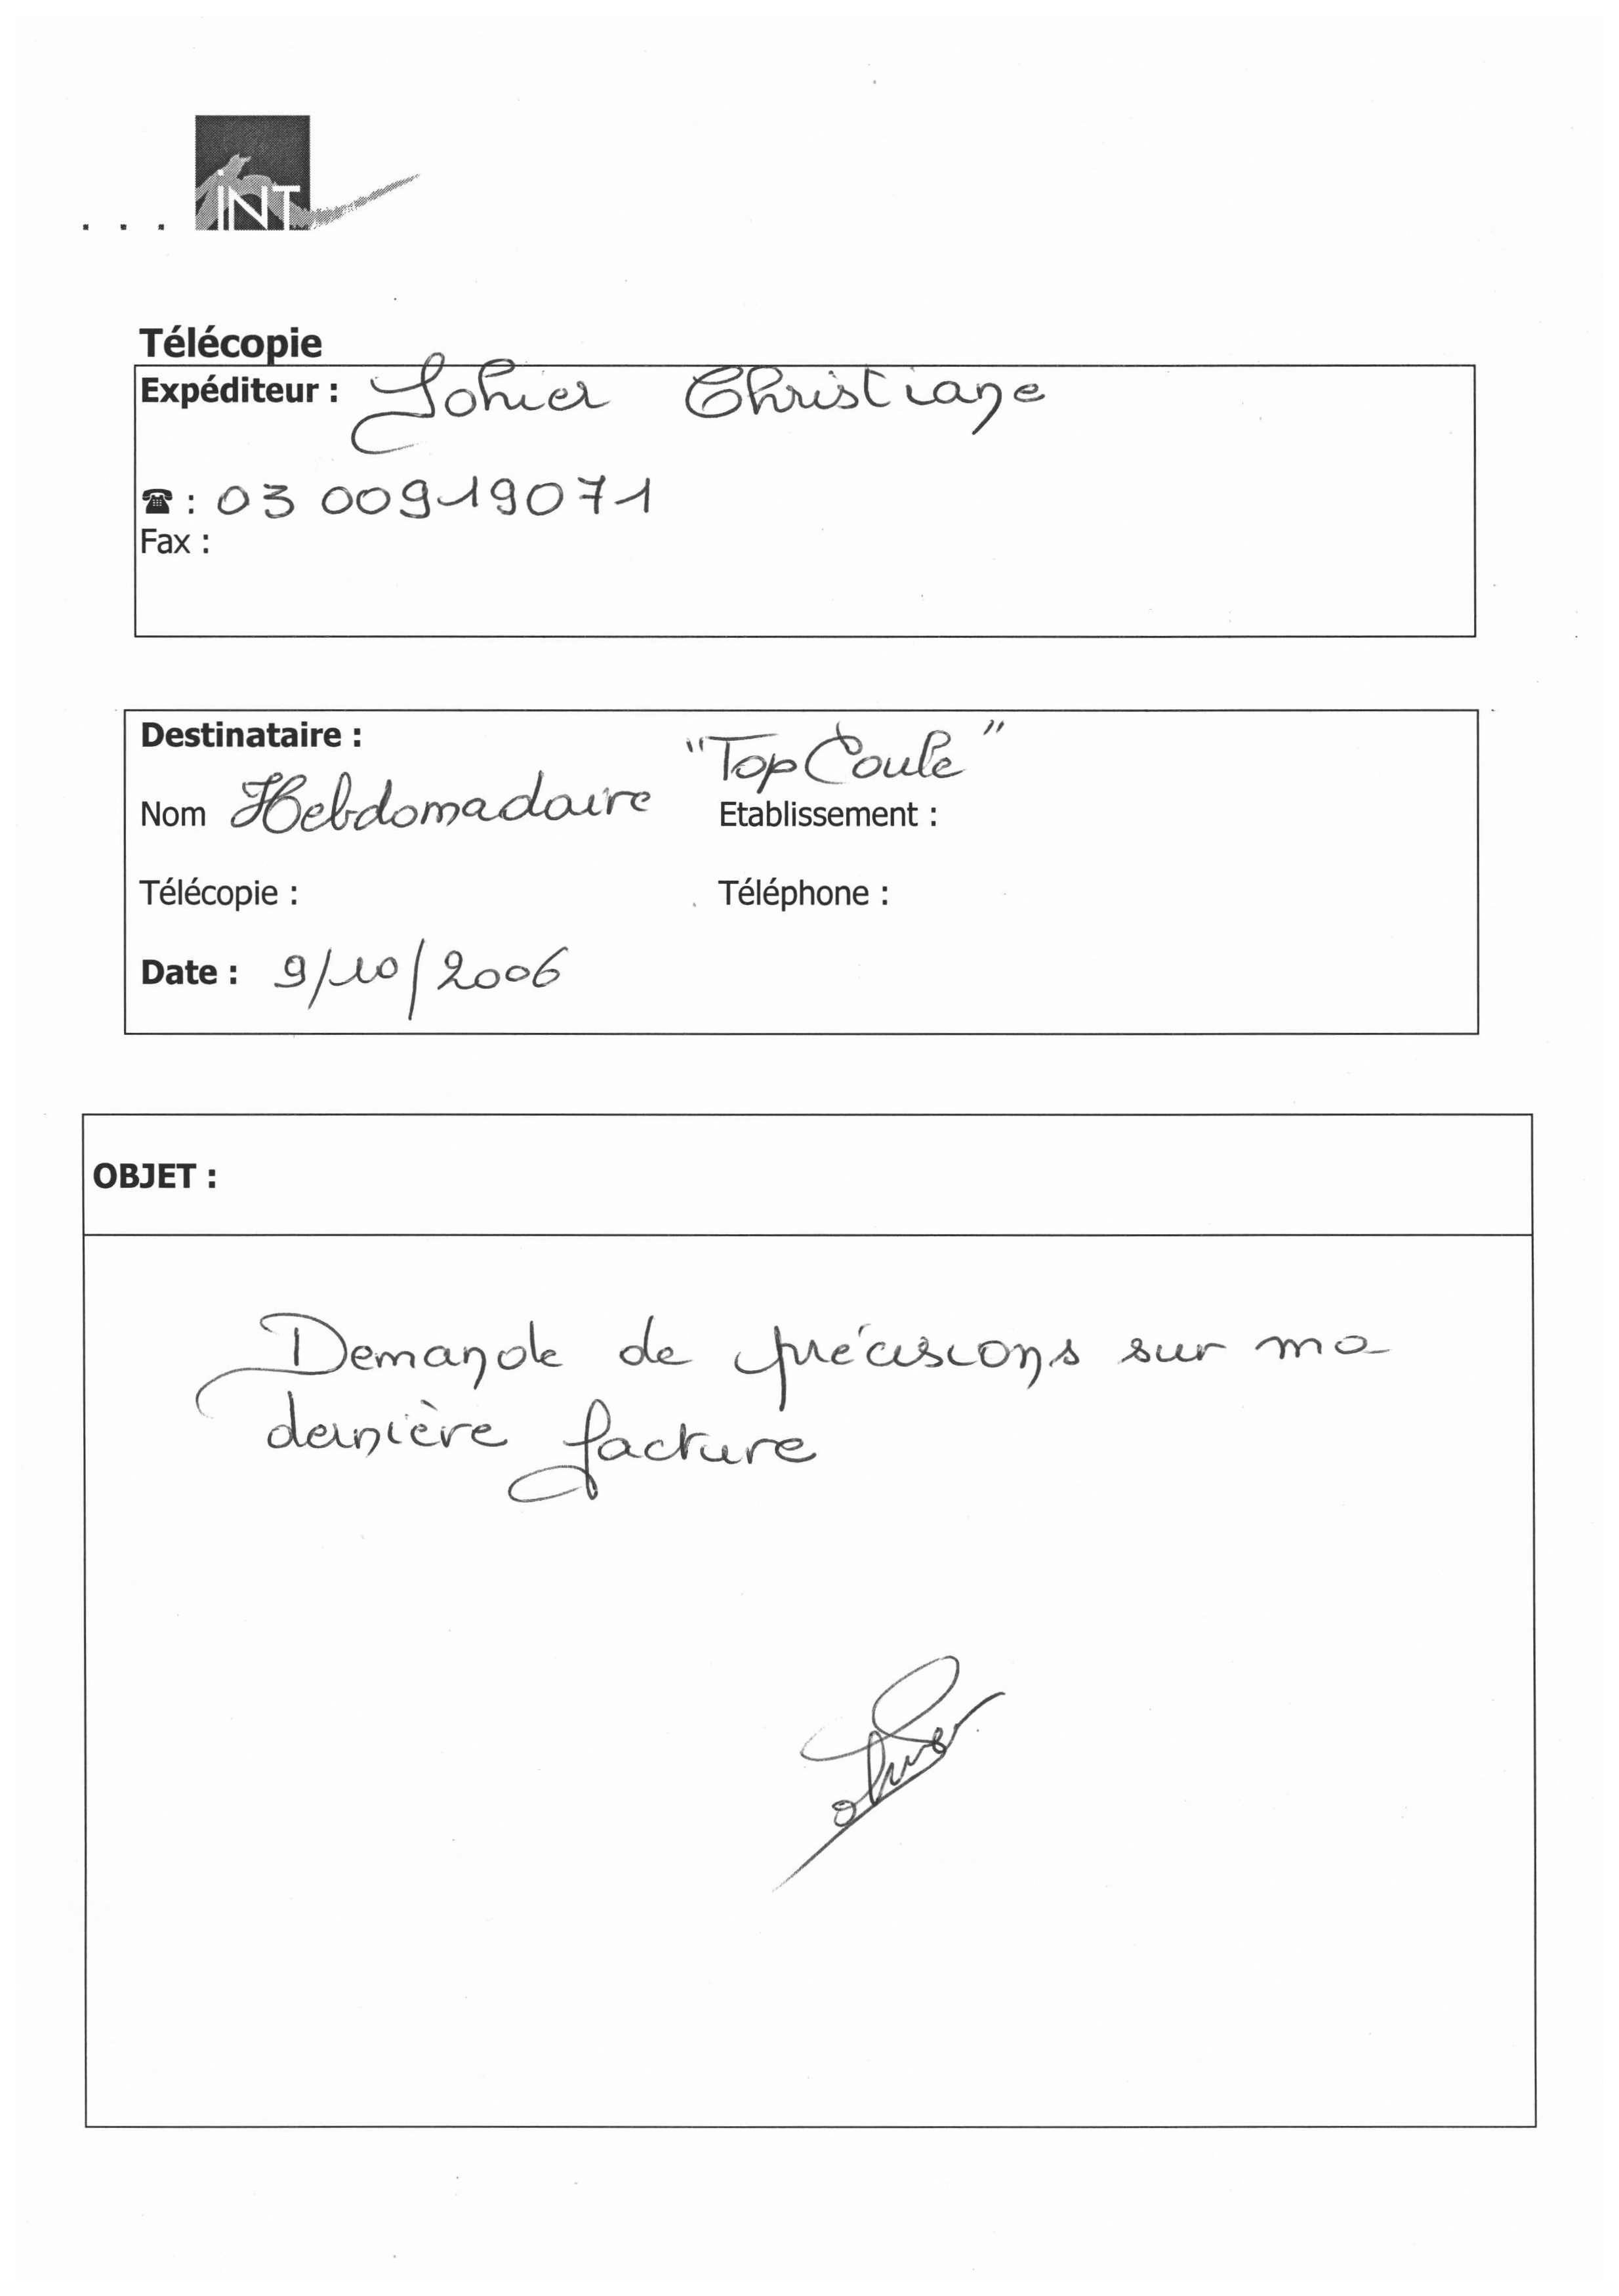 ... iNT
Télécopie
Expéditeur : Johier Christiane
☎ : 03 00919071
Fax :
Destinataire :
"Top Coule"
Nom Hebdomadaire Etablissement :
Télécopie : Téléphone :
Date : 9/10/2006
OBJET :
Demande de précisions sur ma
dernière facture